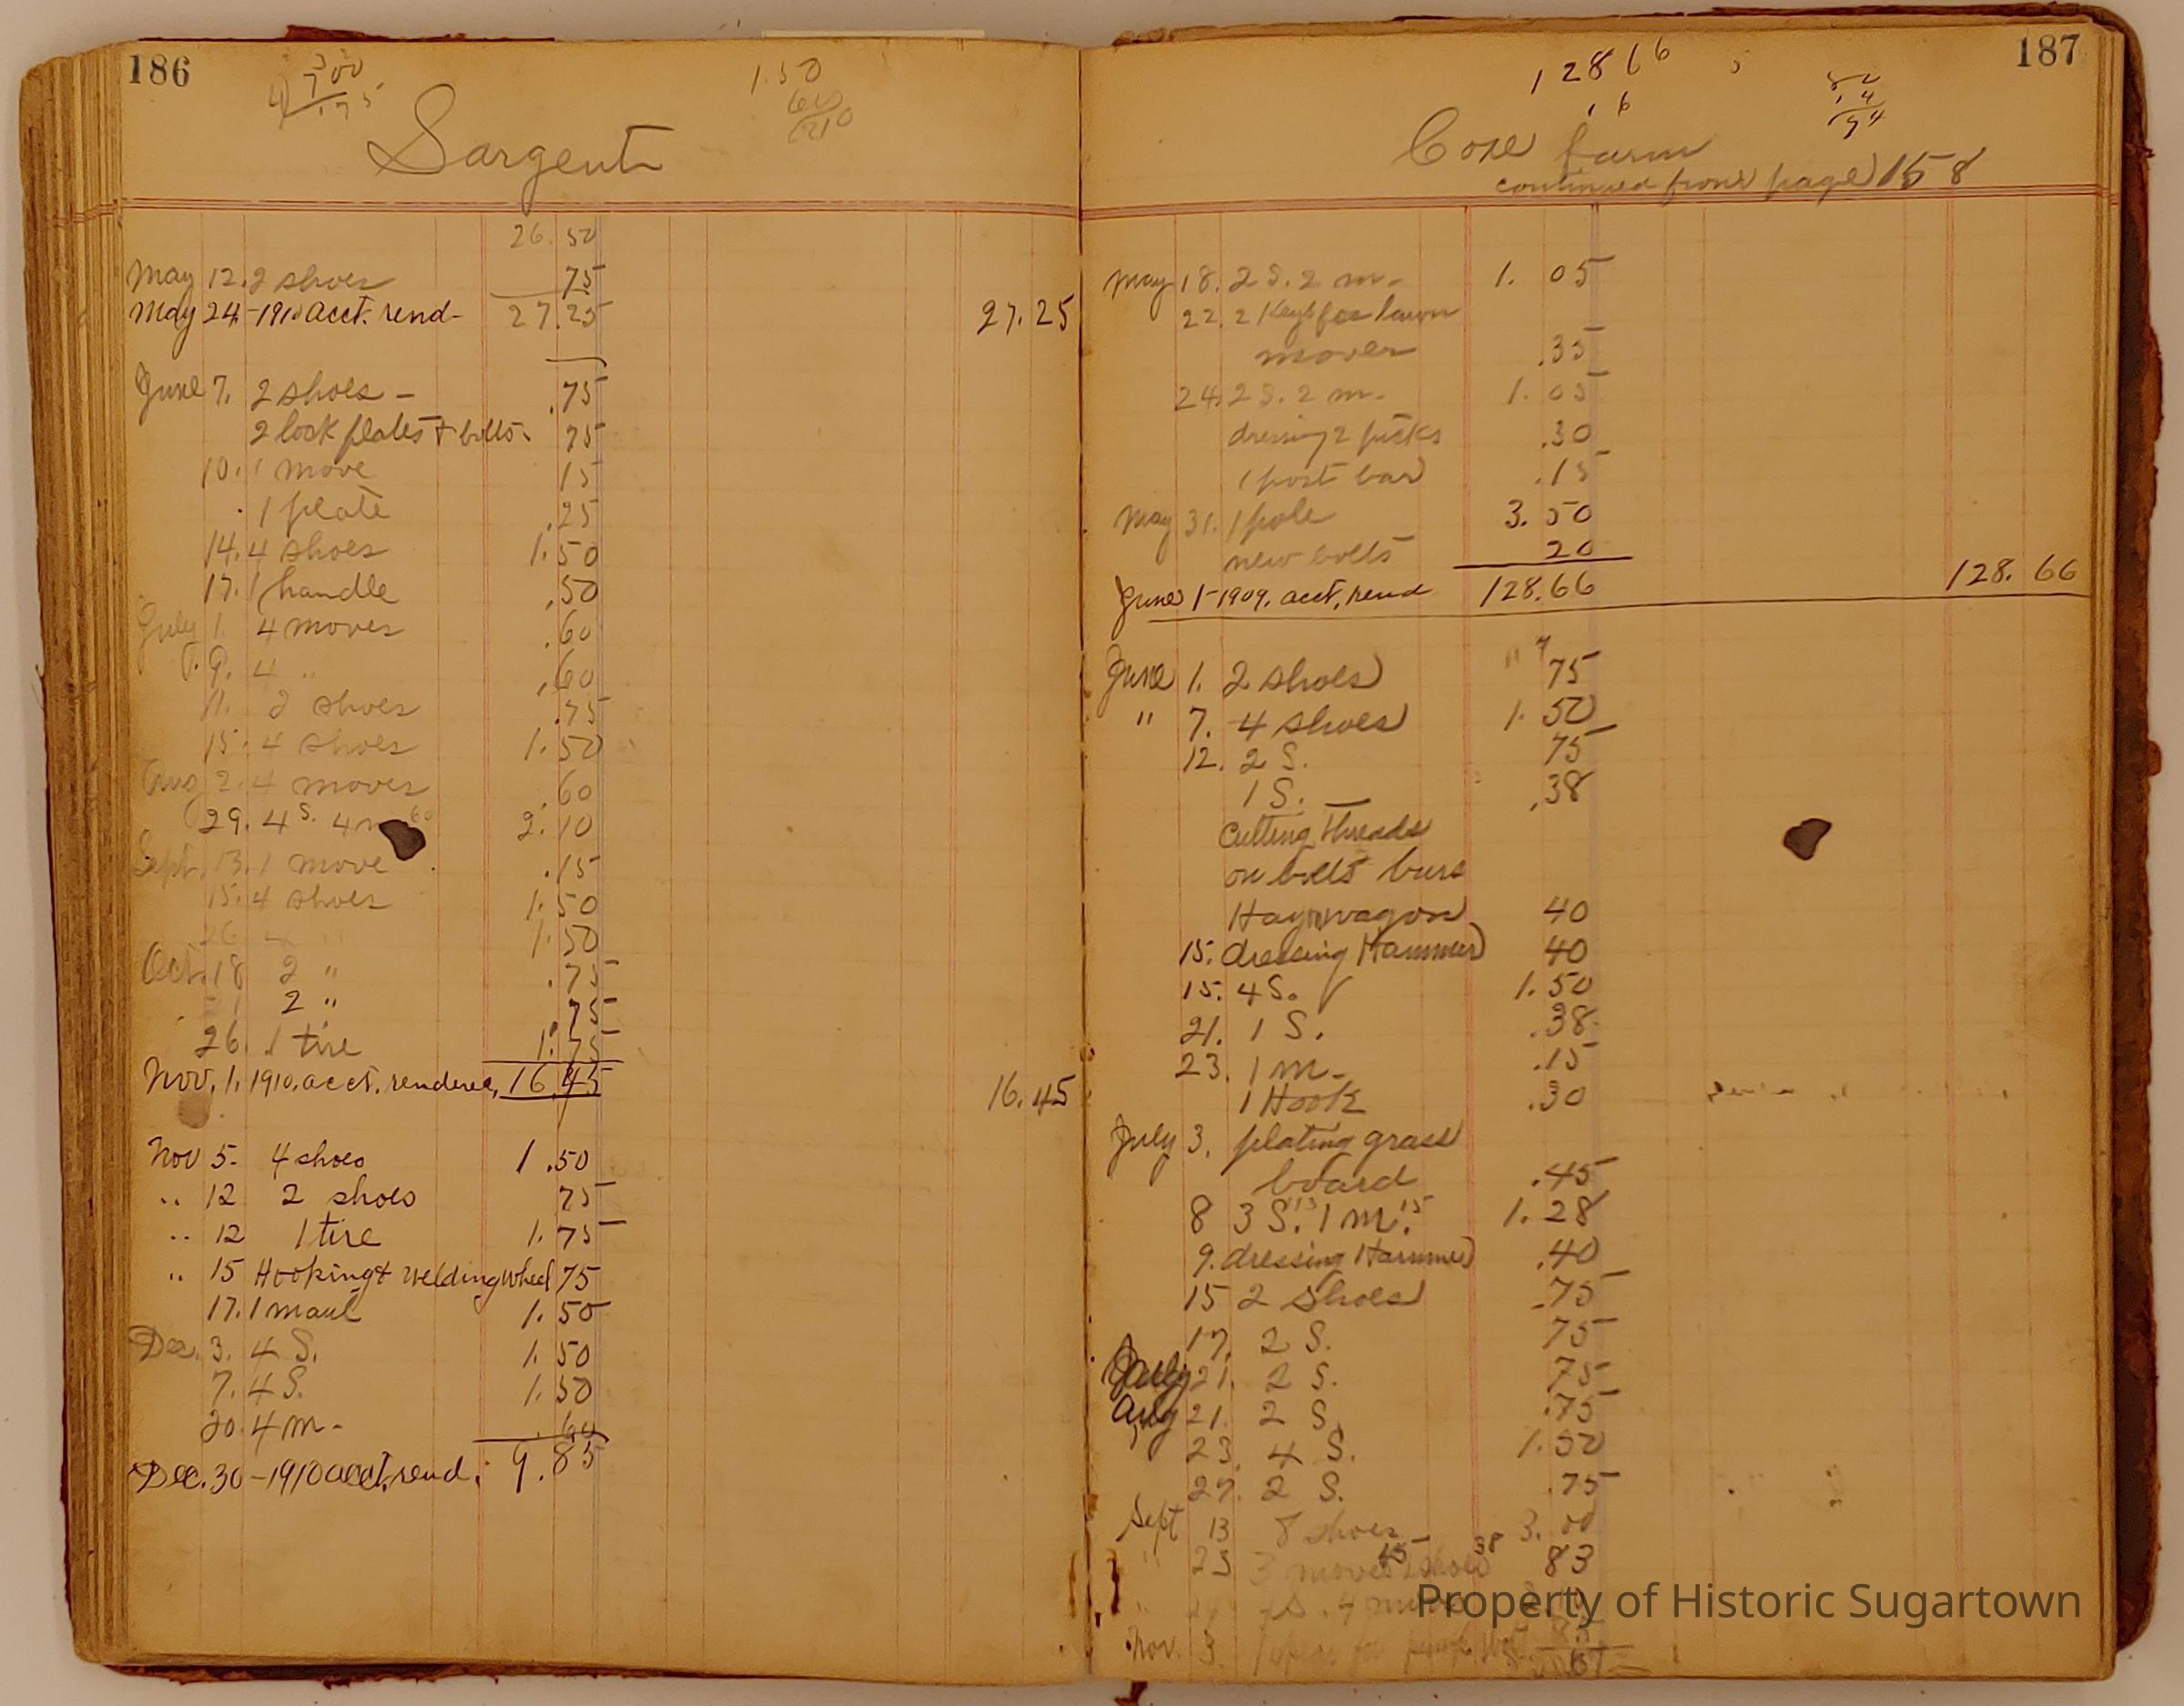 186
4 ) 7 00
1.75
1.50
60
2.10
Sargent
26.50
May 12. 2 shoes 75
May 24 - 1910 acct. rend - 27.25 27.25
June 7. 2 shoes - .75
2 lock plates & bolts. 75
10. 1 move 15
1 plate .25
14. 4 shoes 1.50
17. 1 handle .50
July 1. 4 moves .60
9. 4 " .60
11. 2 shoes .75
15. 4 shoes 1.50
Aug 2. 4 moves .60
29. 4 S. 4 m 60 2.10
Sept. 13. 1 move .15
15. 4 shoes 1.50
26 4 " 1.50
Oct. 18 2 " .75
2 " .75
26. 1 tire 1.75
Nov. 1. 1910. acct. rendered, 16.45 16.45
Nov 5. 4 shoes 1.50
" 12 2 shoes 75
" 12 1 tire 1.75
" 15 Hooking & welding wheel 75
17. 1 maul 1.50
Dec. 3. 4 S. 1.50
7. 4 S. 1.50
20. 4 m - .60
Dec. 30 - 1910 acct. rend. 9.85
187
128 66
Coxe farm
continued from page 158
May 18. 2 S. 2 m - 1.05
22. 2 Keys for lawn
mower .35
24. 2 S. 2 m - 1.05
dressing 2 picks .30
1 post bar .15
May 31. 1 pole 3.50
new bolts 20
June 1 - 1909. acct. rend 128.66 128.66
June 1. 2 shoes 75
" 7. 4 shoes 1.50
12. 2 S. 75
1 S. .38
Cutting threads
on bolts bars
Hay wagon 40
15. dressing Hammer 40
15. 4 S. 1.50
21. 1 S. .38
23. 1 m - .15
1 Hook .30
July 3. plating grass
board .45
8 3 S. 1 m. 15 1.28
9. dressing Hammer .40
15 2 shoes .75
17. 2 S. 75
July 21. 2 S. .75
Aug 21. 2 S. .75
23. 4 S. 1.50
27. 2 S. .75
Sept 13 8 shoes 3.00
" 25 3 moves 45 1 shoe 38 83
Nov. 3.
Property of Historic Sugartown